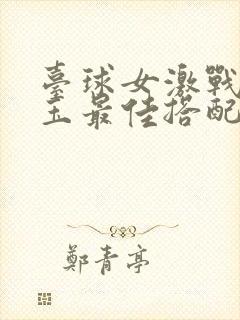 臺球女激戰
玉最佳搭配
鄭青亭